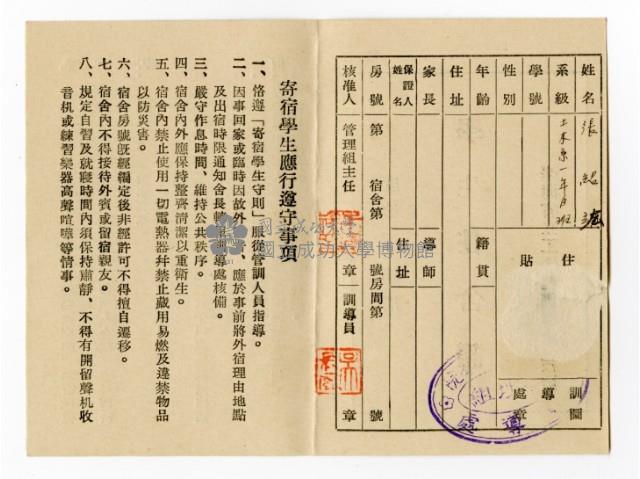 姓名 張
系級 土木系一年 班
學號
性別
年齡 籍貫
住址
家長 導師
保證人姓名 住址
房號 第 宿舍第 號房間第 號
核准人 管理組主任 章 訓導員 章
貼
訓導處
圖章
寄宿學生應行遵守事項
一、恪遵「寄宿學生守則」服從管訓人員指導。
二、因事回家或臨時因故外 、應於事前將外宿理由地點
及出宿時限通知舍長轉 訓導處核備。
三、嚴守作息時間、維持公共秩序。
四、宿舍內外應保持整齊清潔以重衛生。
五、宿舍內禁止使用一切電熱器幷禁止藏用易燃及違禁物品
以防災害。
六、宿舍房號旣經編定後非經許可不得擅自遷移。
七、宿舍內不得接待外賓或留宿親友。
八、規定自習及就寢時間內須保持肅靜、不得有開留聲机收
音机或練習樂器高聲喧嘩等情事。
國立成功大學
國立成功大學博物館